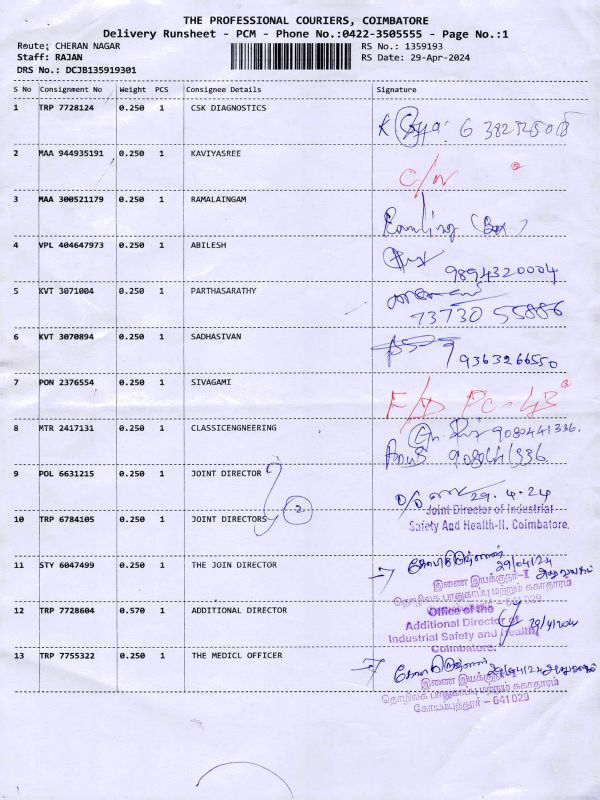 THE PROFESSIONAL COURIERS, COIMBATORE
Delivery Runsheet - PCM - Phone No.:0422-3505555 - Page No.:1
Route: CHERAN NAGAR RS No.: 1359193
Staff: RAJAN RS Date: 29-Apr-2024
DRS No.: DCJB135919301
S No Consignment No Weight PCS Consignee Details Signature
1 TRP 7728124 0.250 1 CSK DIAGNOSTICS
2 MAA 944935191 0.250 1 KAVIYASREE
C/N
3 MAA 300521179 0.250 1 RAMALAINGAM
(Box)
4 VPL 404647973 0.250 1 ABILESH
9894320004
5 KVT 3071004 0.250 1 PARTHASARATHY
73730 55886
6 KVT 3070894 0.250 1 SADHASIVAN
9363266550
7 PON 2376554 0.250 1 SIVAGAMI
8 MTR 2417131 0.250 1 CLASSICENGNEERING
9080441336.
9080441336
9 POL 6631215 0.250 1 JOINT DIRECTOR
29.4.24
2
Joint Director of Industrial
10 TRP 6784105 0.250 1 JOINT DIRECTORS
Safety And Health-II, Coimbatore.
11 STY 6047499 0.250 1 THE JOIN DIRECTOR
29/04/24
இணை இயக்குநர்-I
தொழிலக பாதுகாப்பு மற்றும் சுகாதாரம்
641 029
12 TRP 7728604 0.570 1 ADDITIONAL DIRECTOR
Office of the
Additional Director of
Industrial Safety and Health,
Coimbatore.
13 TRP 7755322 0.250 1 THE MEDICL OFFICER
இணை இயக்குநர்-I
தொழிலக பாதுகாப்பு மற்றும் சுகாதாரம்
கோயம்புத்தூர் – 641 029